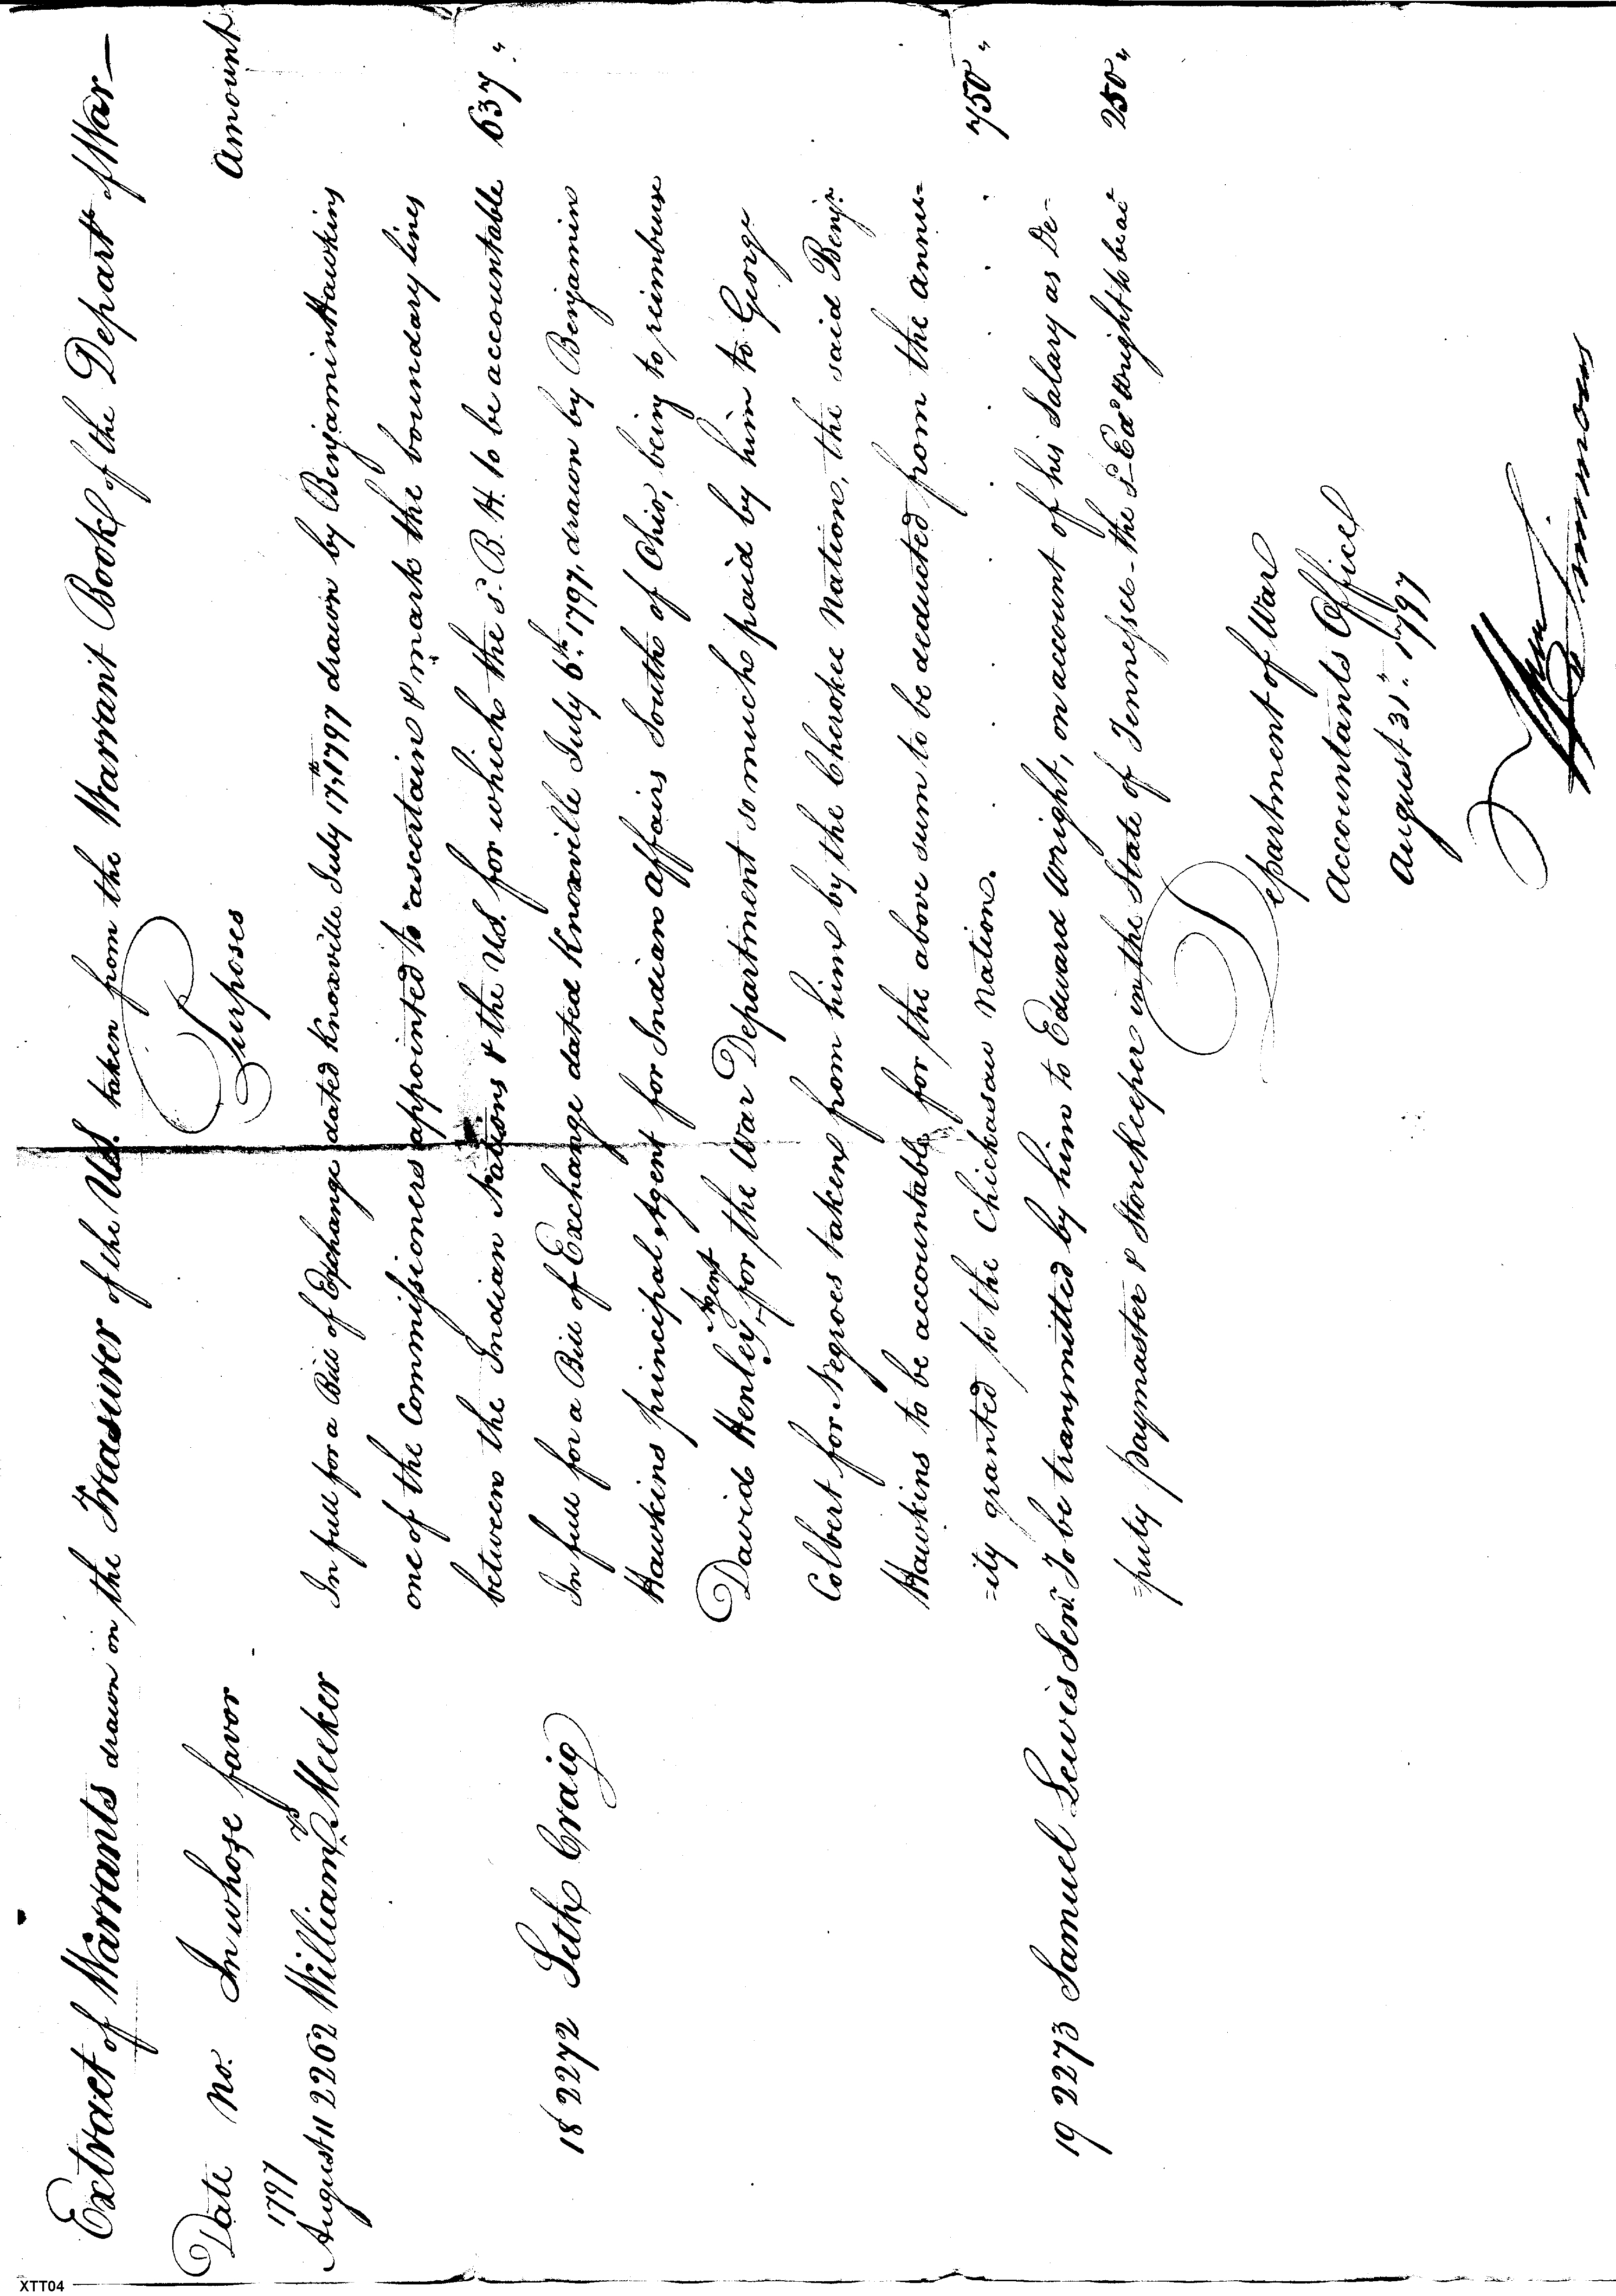 Extract of Warrants drawn on the Treasurer of the U.S. taken from the Warrant Book of the Depart.t of War—
Date No. In whose favor Purposes Amount
1797
August 11 2262 William P. Meeker In full for a Bill of Exchange dated Knoxville July 17.th 1797 drawn by Benjamin Hawkins
one of the Commissioners appointed to ascertain & mark the boundary lines
between the Indian Nations & the U.S. for which the s.d B. H. to be accountable 637 "
18 2272 Seth Craig In full for a Bill of Exchange dated Knoxville July 6.th 1797, drawn by Benjamin
Hawkins principal Agent for Indian affairs South of Ohio, being to reimburse
David Henley, Agent for the War Department so much paid by him to George
Colbert for Negroes taken from him by the Cherokee Nation, the said Benj.n
Hawkins to be accountable for the above sum to be deducted from the annu=
=ity granted to the Chickasaw Nation. . . . . . . . 750 "
19 2273 Samuel Lewis Sen.r To be transmitted by him to Edward Wright, on account of his Salary as De=
=puty paymaster & Storekeeper in the State of Tennessee - the s.d Ed.d Wright to be ac.t 250 "
Department of War
Accountants Office
August 31.st 1797
Wm Simmons
XTT04